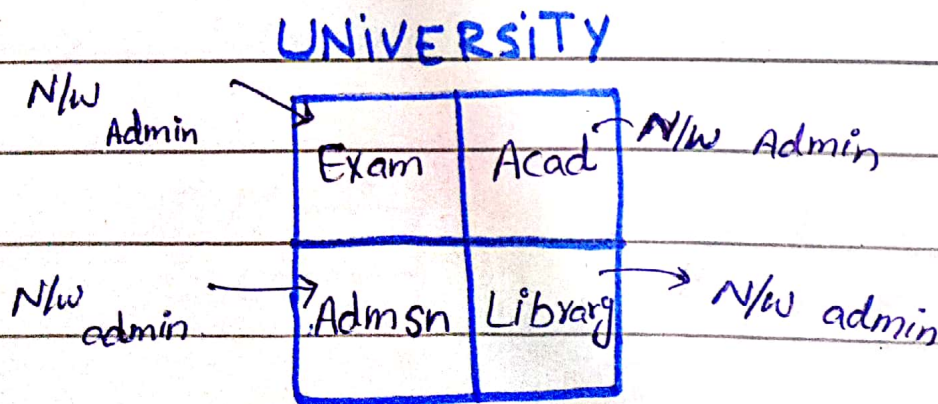 UNiVERSiTY
N/W Admin
Exam
Acad
N/W Admin
N/W admin
Admsn
Library
N/W admin